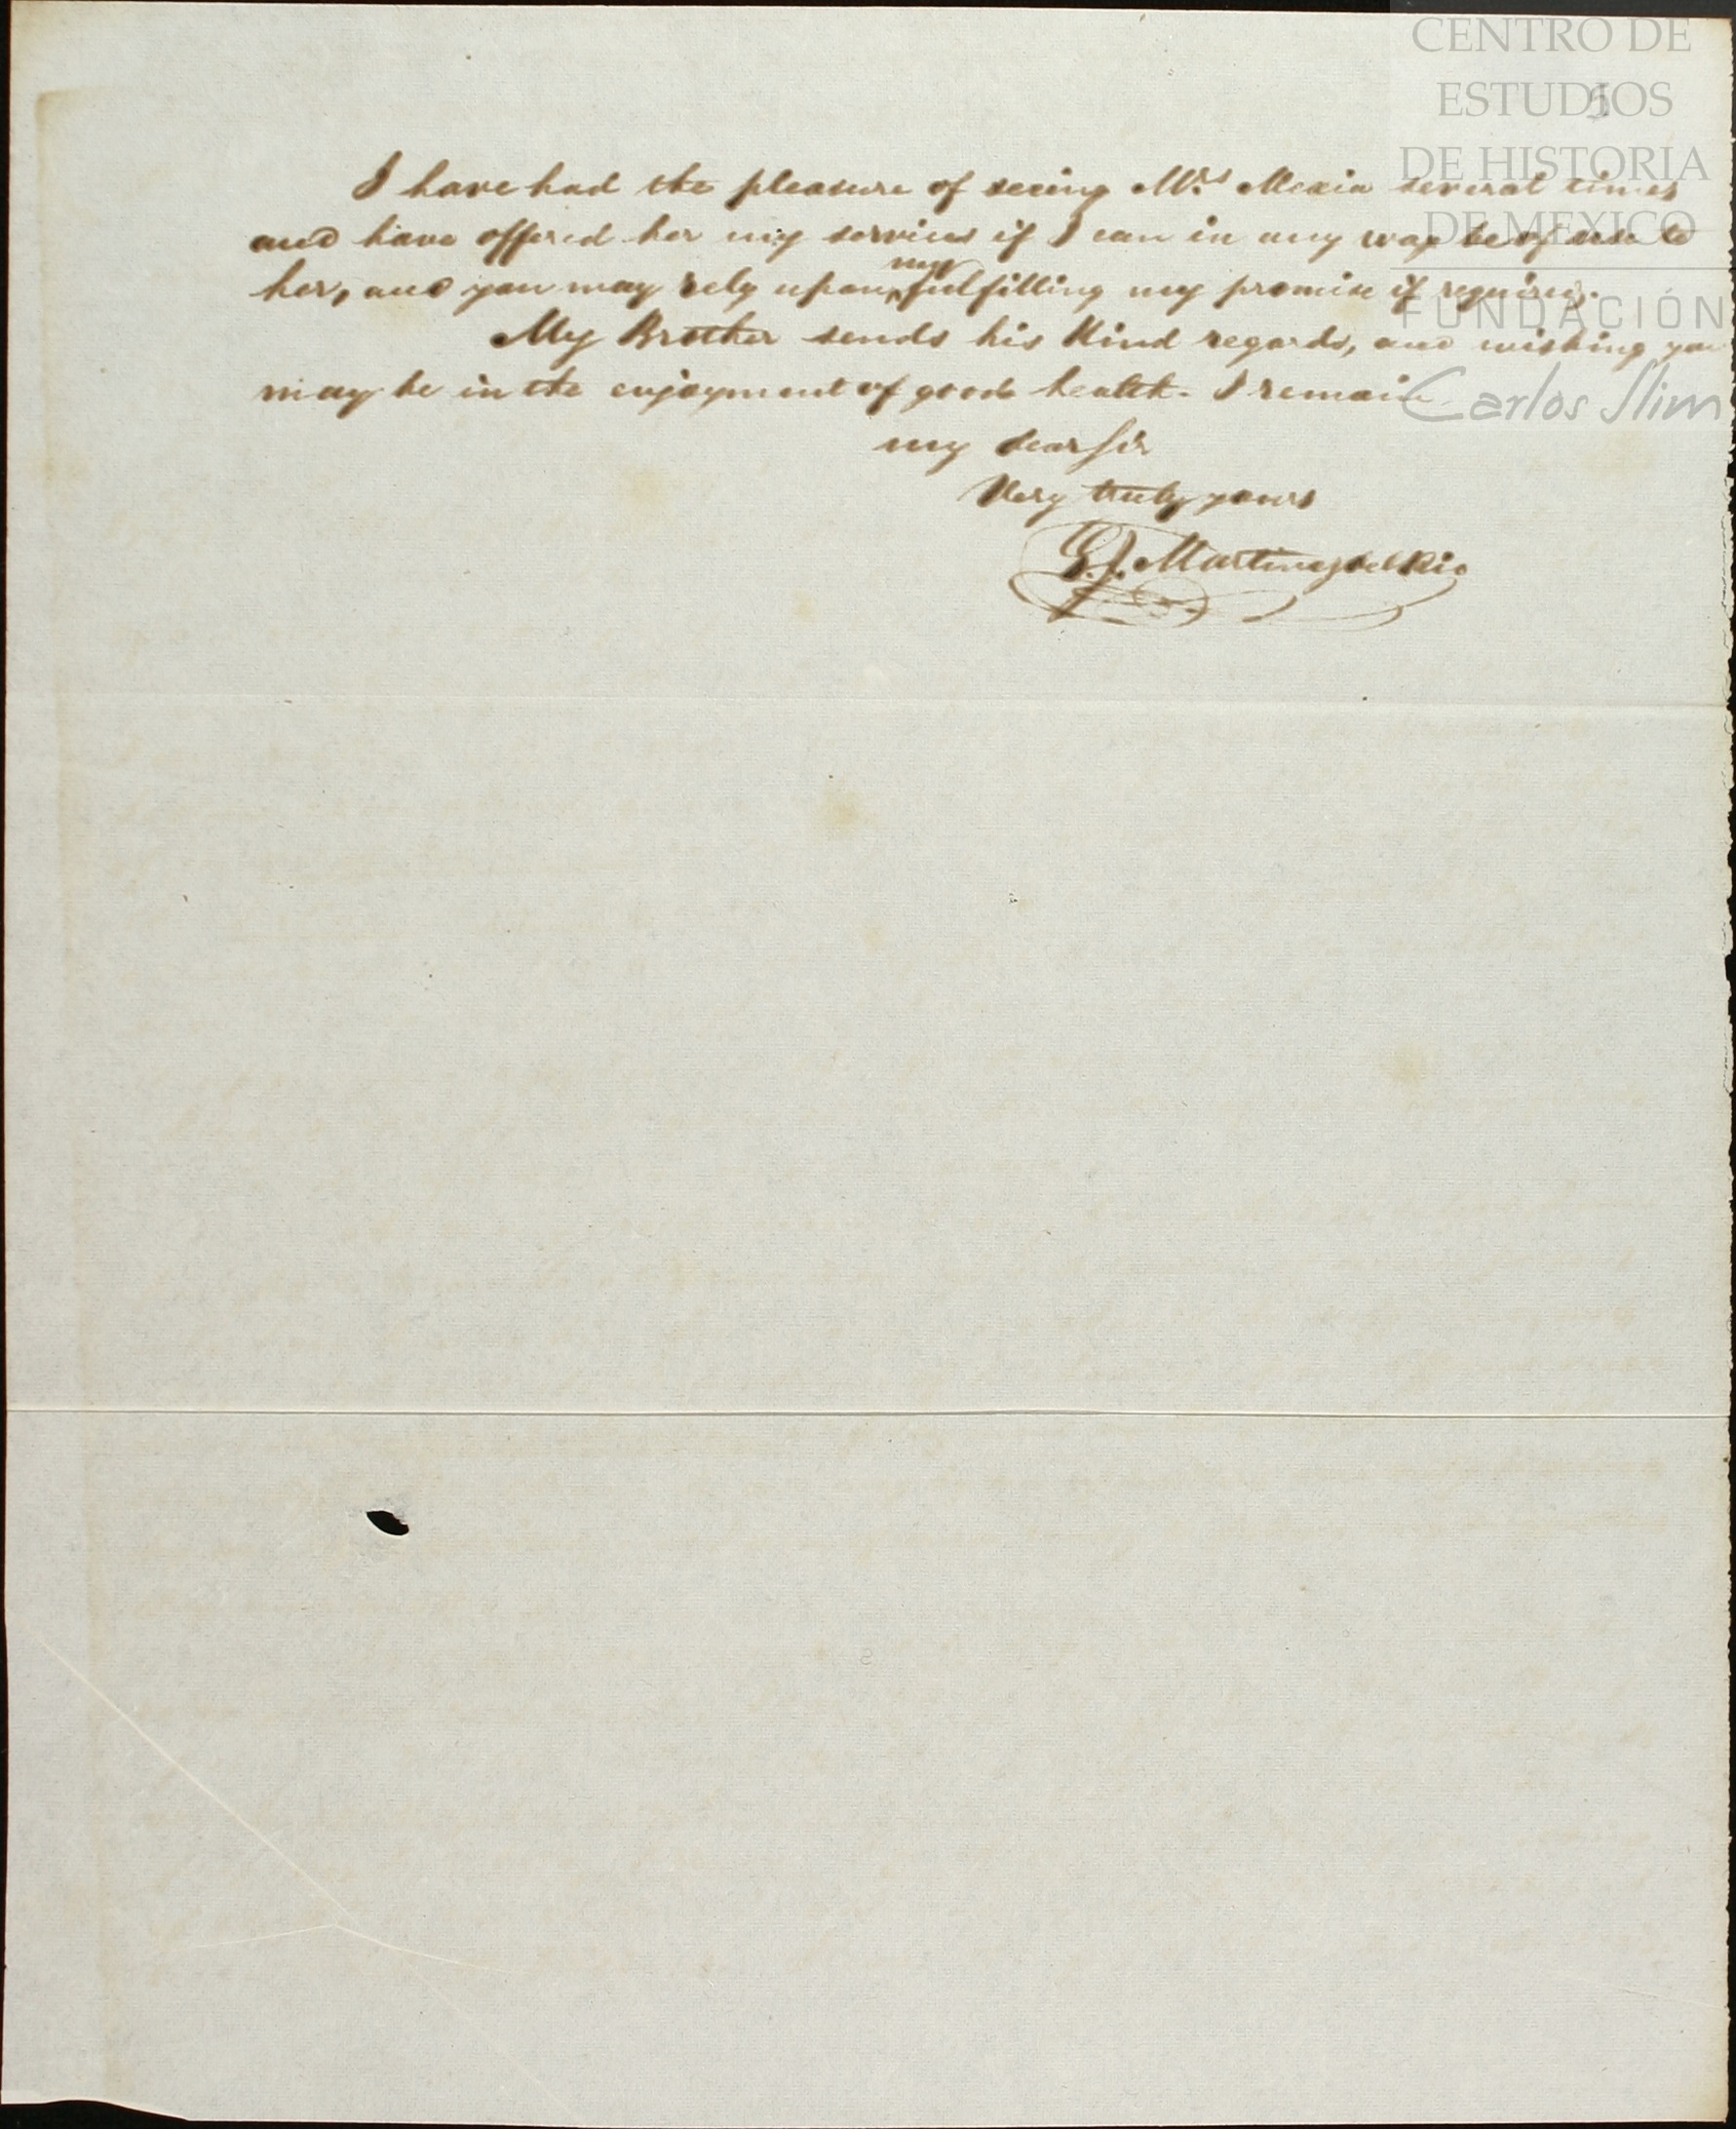 CENTRO DE
ESTUDIOS
DE HISTORIA
DE MEXICO
FUNDACIÓN
Carlos Slim
5
I have had the pleasure of seeing Mrs Mexia several times
and have offered her my services if I can in any way be of use to
her, and you may rely upon my fulfilling my promise if required.
My Brother sends his Kind regards, and wishing you
may be in the enjoyment of good health. I remain
my dear Sir
Very truly yours
G. J. Martinez del Rio